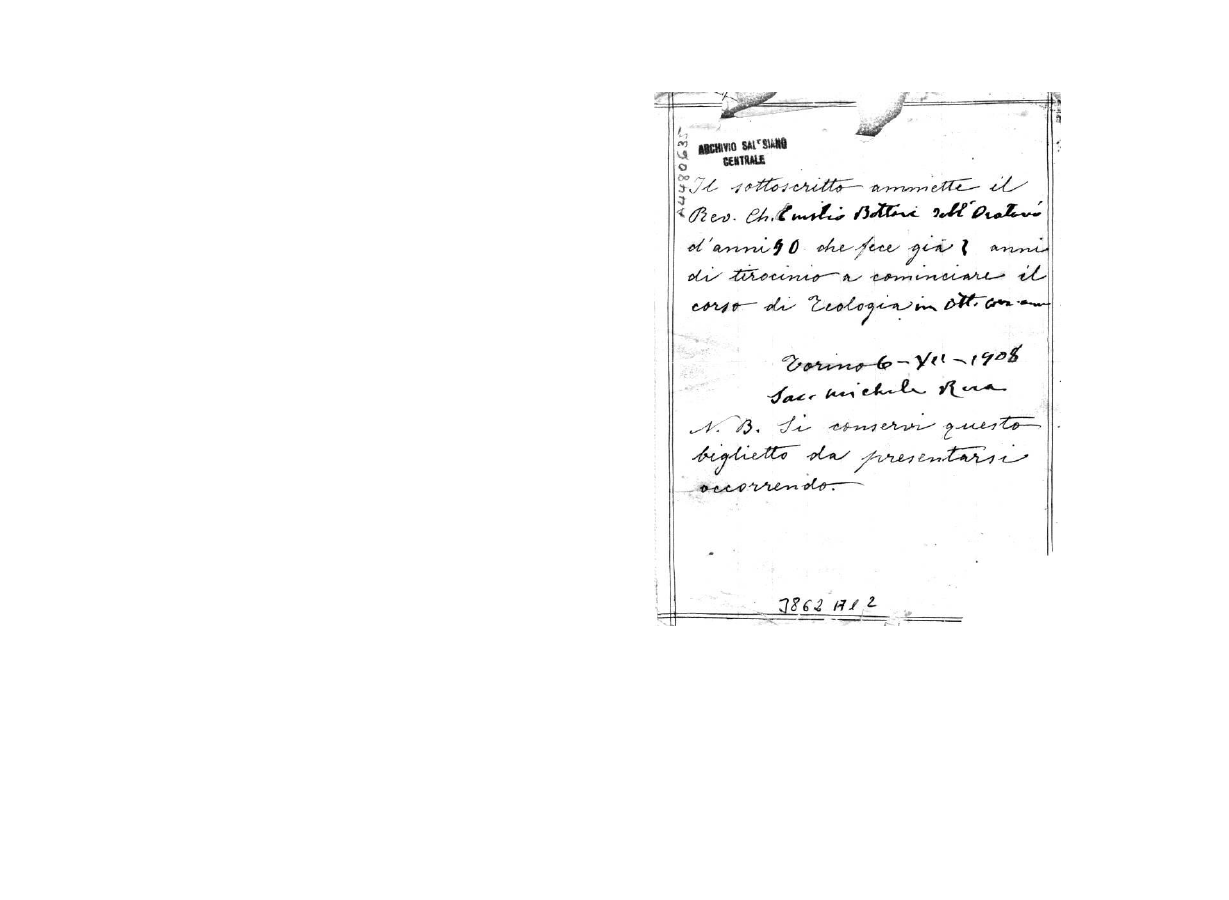 A4480635
ARCHIVIO SALESIANO
CENTRALE
Il sottoscritto ammette il
Rev. Ch. Emilio Bottari dell'Oratorio
d'anni che fece già anni
di tirocinio a cominciare il
corso di Teologia in Ott.
Torino 6-VII-1908
Sac. Michele Rua
N. B. Si conservi questo
biglietto da presentarsi
occorrendo.
3862